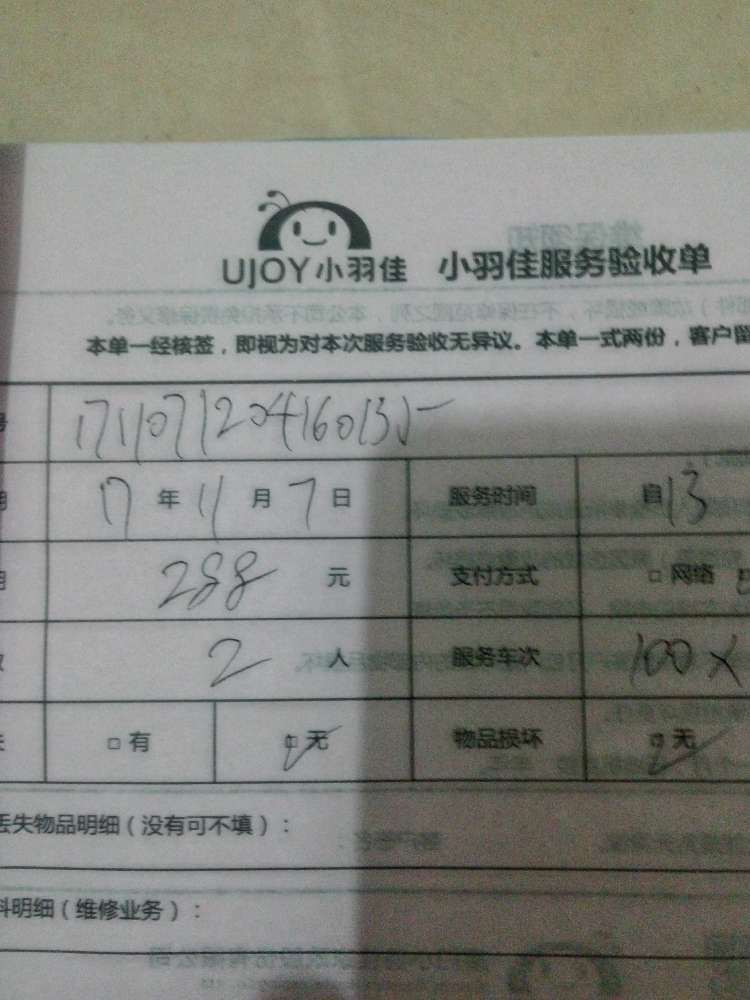 UJOY小羽佳 小羽佳服务验收单
本单一经核签，即视为对本次服务验收无异议。本单一式两份，客户留
号 1711071204160135
期 17 年 11 月 7 日 服务时间 自 13
288 元 支付方式 □ 网络
2 人 服务车次 100×
失 □ 有 □ 无 物品损坏 □ 无
丢失物品明细（没有可不填）：
料明细（维修业务）：